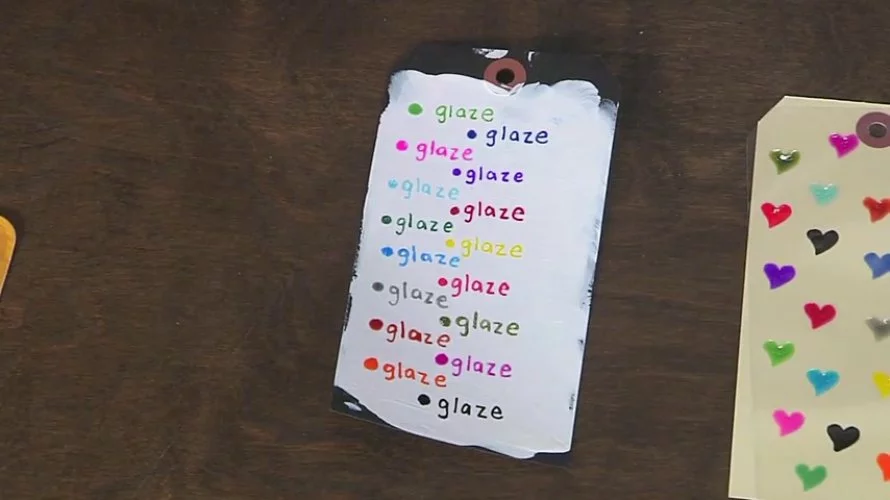 glaze
glaze
glaze
glaze
glaze
glaze
glaze
glaze
glaze
glaze
glaze
glaze
glaze
glaze
glaze
glaze